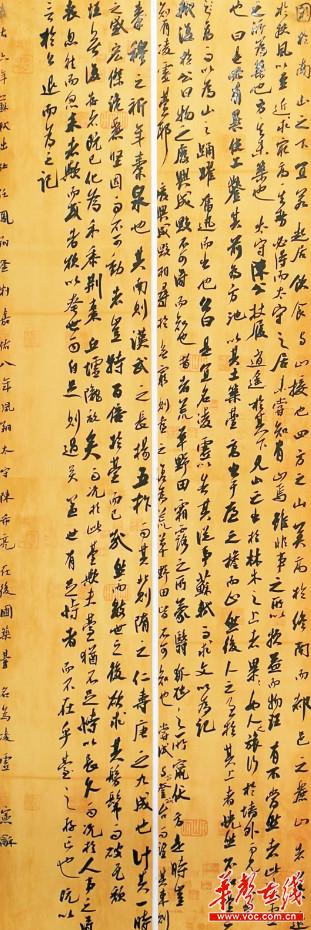 國於南山之下宜若起居飲食與山接也四方之山莫高於終南而都邑之麗山者
於扶風以至近求最高其勢必得而太守之居未嘗知有山焉雖非事之所以損益而物理有不當然者此
之所為築也方其未築也太守陳公杖履逍遙於其下見山之出於林木之上者累累如人之旅行於牆外而見
也曰是必有異使工鑿其前為方池以其土築臺高出於屋之檐而止然後人之至於其上者怳然不
以為山之踴躍奮迅而出也公曰是宜名凌虛以告其從事蘇軾而求文以為記
軾復於公曰物之廢興成毀不可得而知也昔者荒草野田霜露之所蒙翳狐虺之所竄伏方是時豈
知有凌虛臺耶廢興成毀相尋於無窮則臺之復為荒草野田皆不可知也嘗試與公登臺而望其東則
秦穆之祈年橐泉也其南則漢武之長楊五柞而其北則隋之仁壽唐之九成也計其一時
之盛宏傑詭麗堅固而不可動者豈特百倍於臺而已哉然而數世之後欲求其髣髴而破瓦頹
垣無復存者既已化為禾黍荊棘丘墟隴畝矣而況於此臺歟夫臺猶不足恃以長久而況於人事之得
喪忽往而忽來者歟而或者欲以夸世而自足則過矣蓋世有足恃者而不在乎臺之存亡也既以
言於公退而為之記
六年蘇軾出任鳳翔簽判嘉佑八年鳳翔太守陳希亮在後圃築臺名為凌虛
華聲在線
www.voc.com.cn